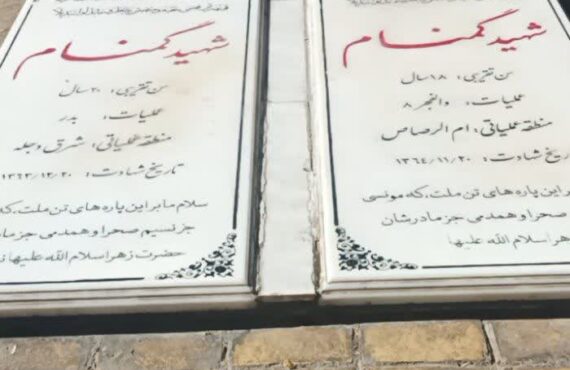 شهید گمنام
سن تقریبی: ۱۸ سال
عملیات: والفجر ۸
منطقه عملیاتی: ام الرصاص
تاریخ شهادت: ۱۳۶۴/۱۱/۲۰
بر این پاره های تن ملت، که مونسی
صحرا و همدمی جز مادرشان
زهرا سلام الله علیها
شهید گمنام
سن تقریبی: ۲۰ سال
عملیات: بدر
منطقه عملیاتی: شرق دجله
تاریخ شهادت: ۱۳۶۳/۱۲/۲۰
سلام ما بر این پاره های تن ملت، که
جز نسیم صحرا و همدمی جز ما
حضرت زهرا سلام الله علیها